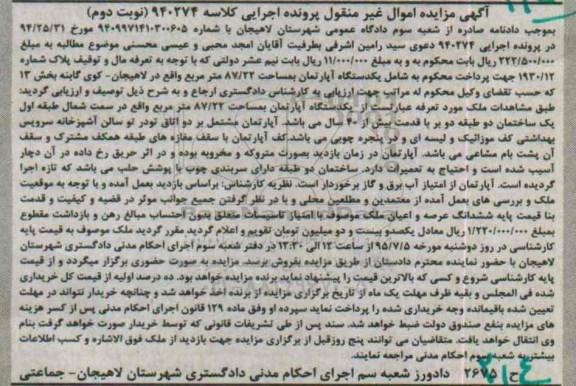 آگهی مزایده اموال غیر منقول پرونده اجرایی کلاسه ۹۴۰۲۷۴ (نوبت دوم)
بموجب دادنامه صادره از شعبه سوم دادگاه عمومی شهرستان لاهیجان با شماره ۹۴۰۹۹۷۱۴۱۰۳۰۰۶۰۵ مورخ ۹۴/۲۵/۳۱
در پرونده اجرایی ۹۴۰۲۷۴ دعوی سید رامین اشرفی بطرفیت آقایان امجد محبی و عیسی محسنی موضوع مطالبه به مبلغ
۲۲۲/۵۰۰/۰۰۰ ریال بابت محکوم به و به مبلغ ۱۱/۰۰۰/۰۰۰ ریال بابت نیم عشر دولتی که با توجه به تعرفه مال و توقیف پلاک شماره
۱۹۳۰/۱۲ جهت پرداخت محکوم به شامل یکدستگاه آپارتمان بمساحت ۸۷/۲۲ متر مربع واقع در لاهیجان- کوی گابنه بخش ۱۳
که حسب تقضای وکیل محکوم له مراتب جهت ارزیابی به کارشناس دادگستری ارجاع و به شرح ذیل توصیف و ارزیابی گردید:
طبق مشاهدات ملک مورد تعرفه عبارتست از یکدستگاه آپارتمان بمساحت ۸۷/۲۲ متر مربع واقع در سمت شمال طبقه اول
یک ساختمان دو طبقه دو بر با قدمت بیش از ۴۰ سال می باشد. آپارتمان مشتمل بر دو اتاق تودر تو سالن آشپزخانه سرویس
بهداشتی کف موزائیک و لیسه ای و در پنجره چوبی می باشد. کف آپارتمان با سقف مغازه های طبقه همکف مشترک و سقف
آن پشت بام مشاعی می باشد. آپارتمان در زمان بازدید بصورت متروکه و مخروبه بوده و در اثر حریق رخ داده در آن دچار
آسیب شده است و احتیاج به تعمیرات دارد. ساختمان دو طبقه دارای سربندی چوب با پوشش حلب می باشد که تازه اجرا
گردیده است. آپارتمان از امتیاز آب برق و گاز برخوردار است. نظریه کارشناس: براساس بازدید بعمل آمده و با توجه به موقعیت
ملک و بررسی های بعمل آمده از معتمدین و مطلعین محلی و با در نظر گرفتن جمیع جوانب موثر در قضیه و کیفیت و قدمت
بنا قیمت پایه ششدانگ عرصه و اعیان ملک موصوف با امتیاز تاسیسات متعلق بدون احتساب مبالغ رهن و بازداشت مقطوع
بمبلغ ۱/۲۲۰/۰۰۰/۰۰۰ ریال معادل یکصدو بیست و دو میلیون تومان تقویم و اعلام گردید مقرر گردید ملک موصوف به قیمت پایه
کارشناسی در روز دوشنبه مورخه ۹۵/۷/۵ از ساعت ۱۲ الی ۱۲:۳۰ در دفتر شعبه سوم اجرای احکام مدنی دادگستری شهرستان
لاهیجان با حضور نماینده محترم دادستان از طریق مزایده بفروش برسد. مزایده به صورت حضوری برگزار میگردد و از قیمت
پایه کارشناسی شروع و کسی که بالاترین قیمت را پیشنهاد نماید برنده مزایده خواهد بود. ده درصد اولیه از قیمت کل خریداری
شده فی المجلس و بقیه ظرف مهلت یک ماه از تاریخ برگزاری مزایده از برنده اخذ خواهد شد و چنانچه خریدار نتواند در مهلت
تعیین شده باقیمانده وجه خریداری شده را پرداخت نماید سپرده او وفق ماده ۱۲۹ قانون اجرای احکام مدنی پس از کسر هزینه
های مزایده بنفع صندوق دولت ضبط خواهد شد. سند پس از طی تشریفات قانونی که توسط خریدار صورت خواهد گرفت بنام
وی انتقال خواهد یافت. متقاضیان می توانند پنج روزقبل از برگزاری مزایده جهت بازدید از ملک فوق الاشاره و کسب اطلاعات
بیشتر به شعبه سوم احکام مدنی مراجعه نمایند.
ح ۲۶۷۵ دادورز شعبه سم اجرای احکام مدنی دادگستری شهرستان لاهیجان- جماعتی